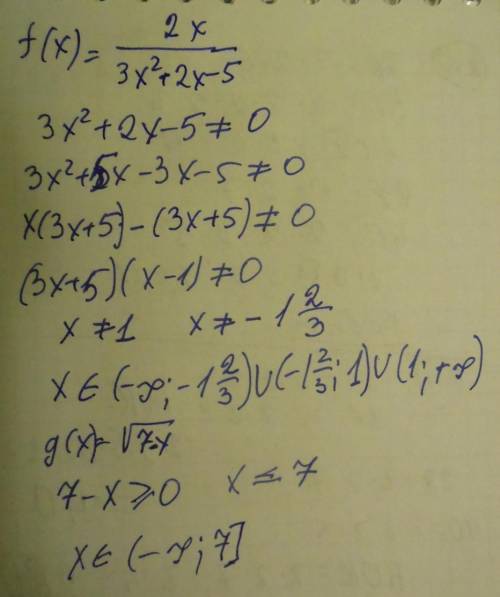 f(x) = 2x / 3x²+2x-5
3x²+2x-5≠0
3x²+5x-3x-5≠0
x(3x+5)-(3x+5)≠0
(3x+5)(x-1)≠0
x≠1 x≠-1 2/3
x∈(-∞;-1 2/3)∪(-1 2/3;1)∪(1;+∞)
g(x)=√7-x
7-x⩾0 x≤7
x∈(-∞;7]